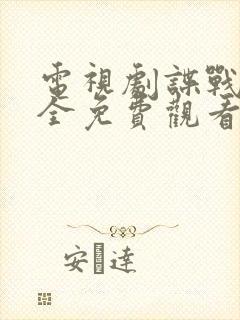 電視劇諜戰
全免費觀看
安達